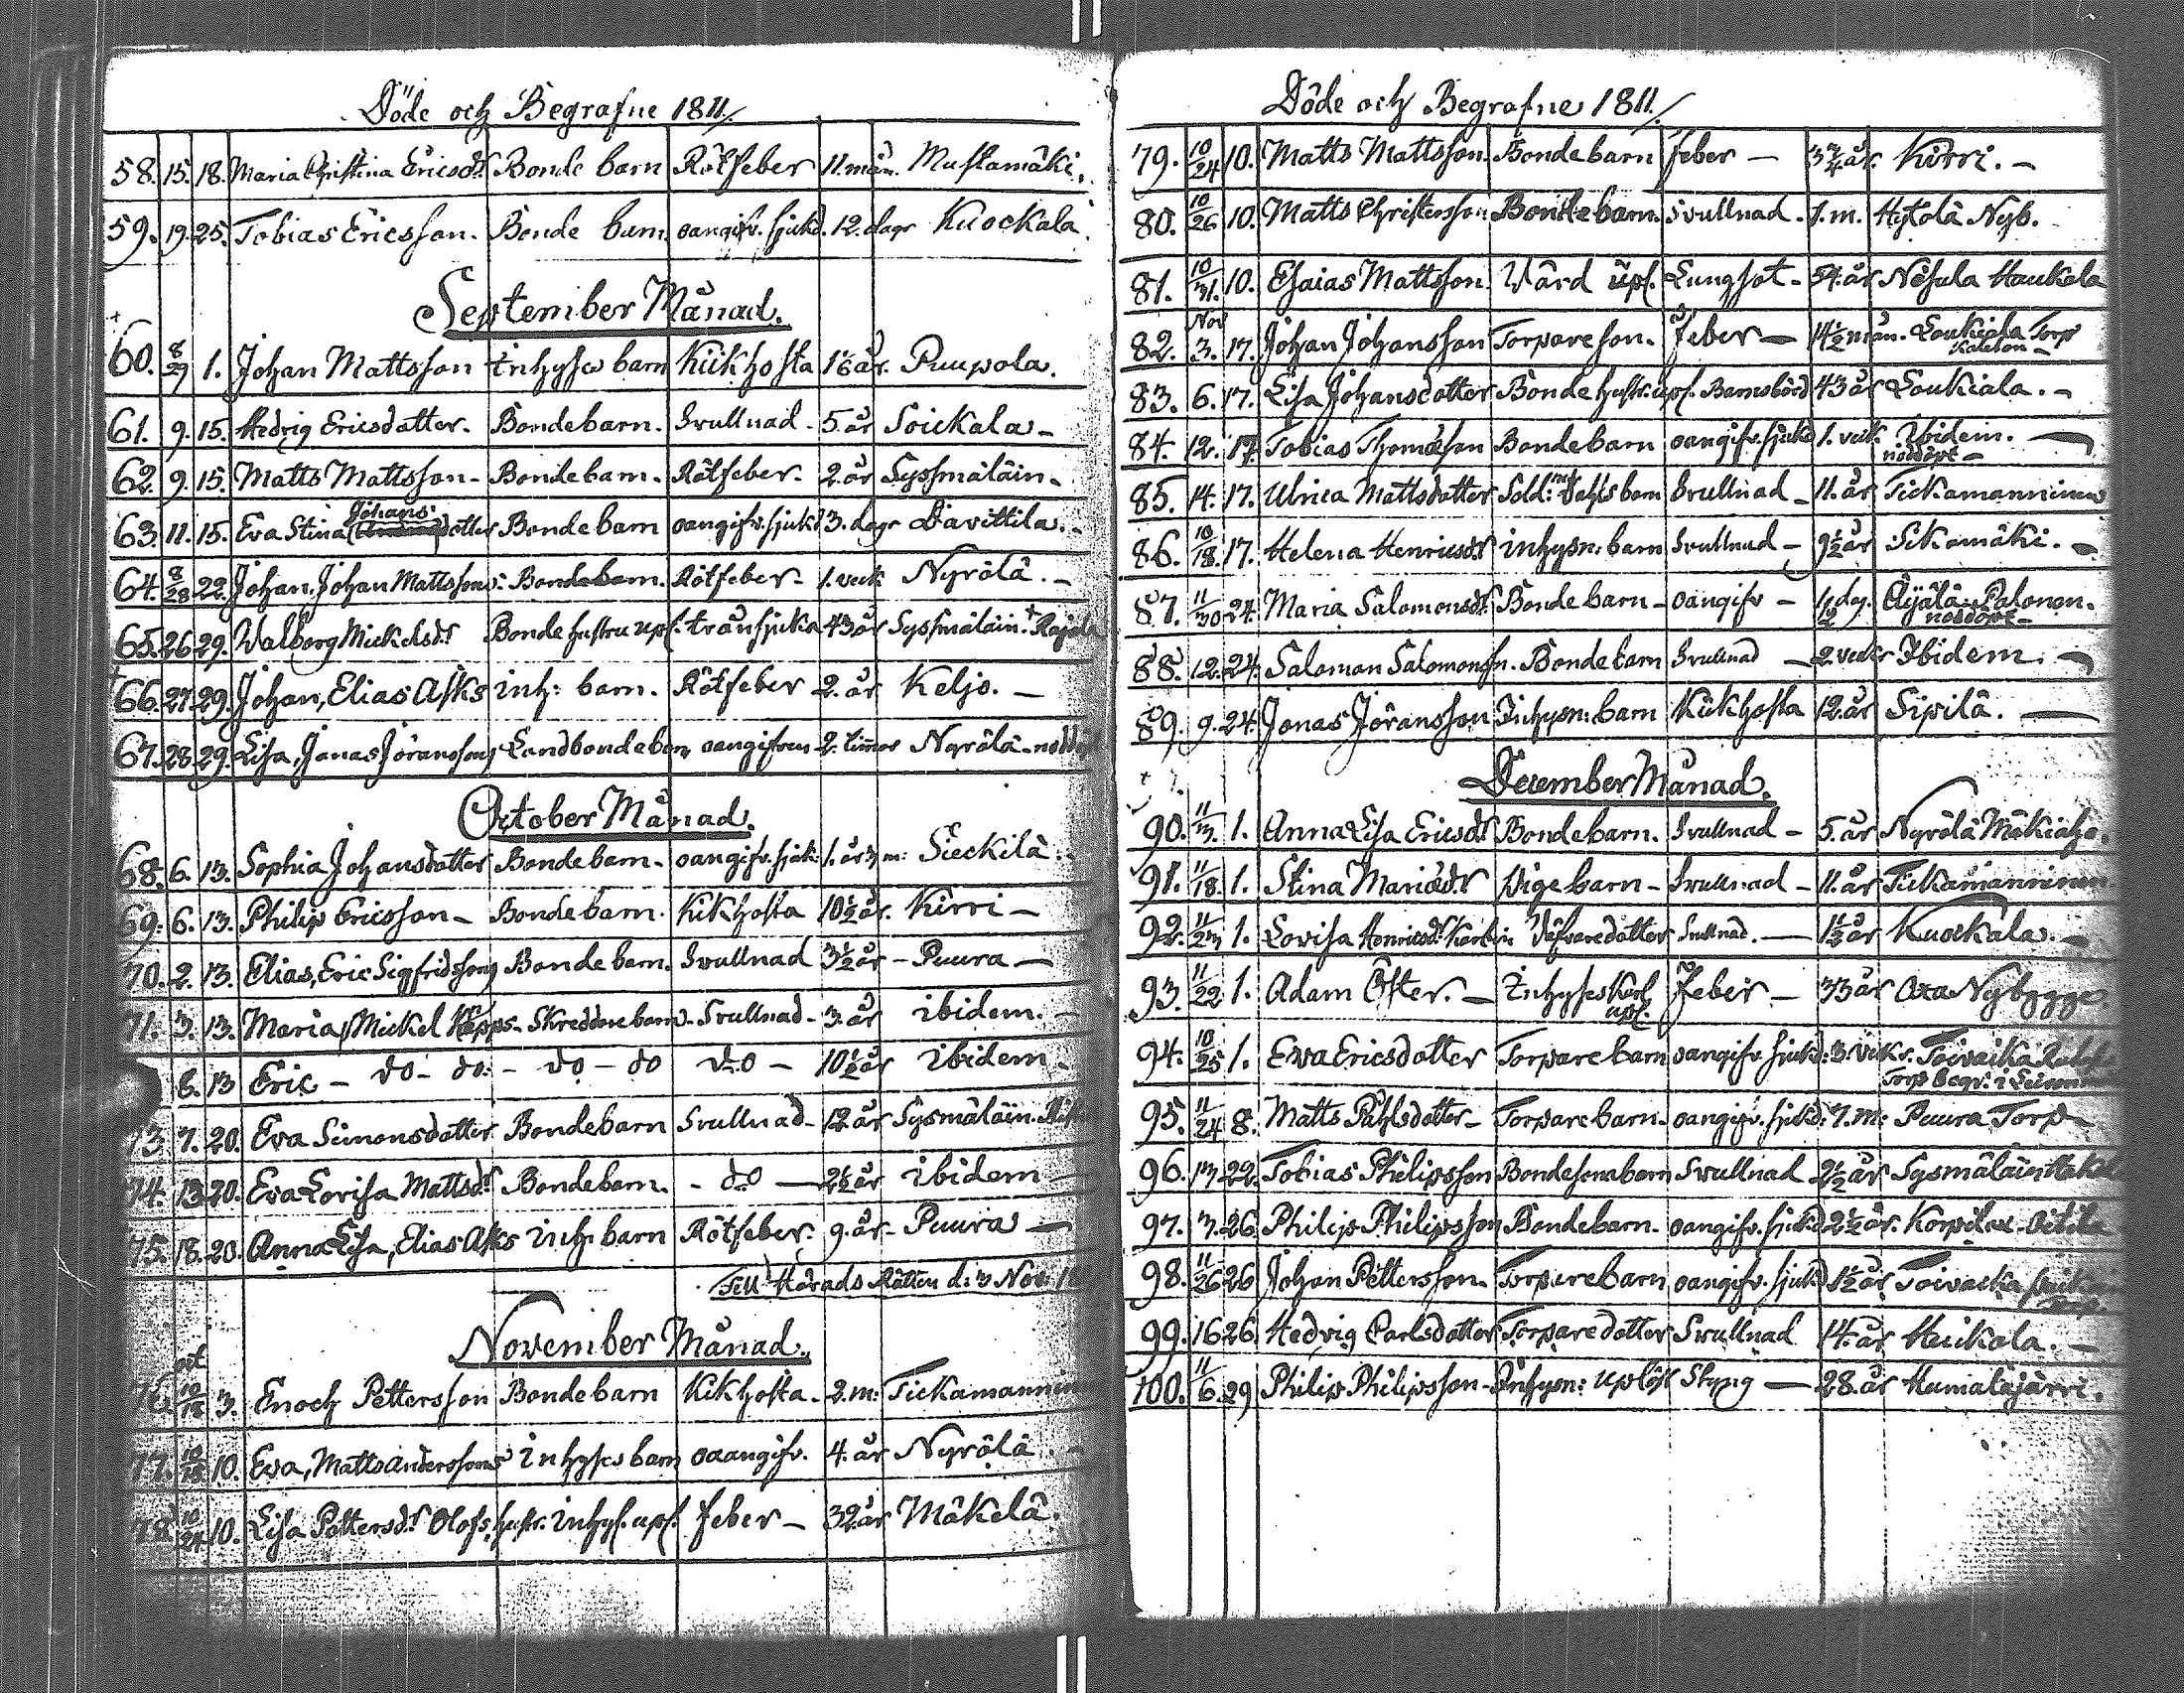 Döde och Begrafne 1811.
58. 15. 18. Maria Christina Ericsdr Bonde barn Rötfeber 11. mån. Mustamäki.
59. 19. 25. Tobias Ericsson. Bonde barn oangifv. sjukd. 12. dagr Kuockala
September Månad.
60. 8/27 1. Johan Mattsson inhyses barn Kikhosta 1 1/6 år. Puupola.
61. 9. 15. Hedvig Ericsdatter. Bondebarn. Svullnad. 5. år Soickala
62. 9. 15. Matts Mattsson Bondebarn. Rötfeber. 2. år Syssmäläin
63. 11. 15. Eva Stina Johans dotter Bonde barn oangifv. sjukd 3. dagr Davittila.
64. 8/28 22. Johan, Johan Mattssons Bondebarn. Rötfeber. 1. veck Nyrölä.
65. 26 29. Walborg Mickelsdr Bonde hustru upl. trånsjuka 43 år Syssmäläin Rajala
66. 27. 29. Johan, Elias Asks inh: barn. Rötfeber 2. år Keljo.
67. 28. 29. Lisa, Jonas Jöranssons Landbondebarn oangifven 2. timar Nyrölä
October Månad.
68. 6. 13. Sophia Johansdatter Bondebarn. oangifv. sjuk: 1. år 3 m: Sieckilä.
69. 6. 13. Philip Ericsson Bondebarn. Kikhosta 10 1/2 år. Kirri
70. 2. 13. Elias, Eric Sigfridssons Bondebarn. Svullnad 3 1/2 år Puura
71. 3. 13. Maria, Mickel Skreddare barn. Svullnad. 3. år ibidem.
8. 13 Eric do do do do do 10 1/2 år ibidem
73. 7. 20. Eva Simonsdatter Bondebarn Svullnad 12 år Sysmäläin
74. 13 20. Eva Lovisa Mattsdr Bondebarn. do 2 1/2 år ibidem
75. 18. 20. Anna Lisa, Elias Asks inh. barn Rötfeber. 9. år Puura
Till Härads Rätten d: 3 Nov:
November Månad.
76. 3. Enoch Pettersson Bondebarn Kikhosta. 2. m: Tickamannin
77. 10. Eva, Matts Anderssons inhyses barn oaangifv. 4. år Nyrölä
78. 10/24 10. Lisa Pettersdr Olofs hustr. inhys. upl. feber 32 år Mäkelä.
Döde och Begrafne 1811.
79. 10/24 10. Matts Mattsson. Bondebarn feber 3 3/4 år. Kirri.
80. 10/26 10. Matts Christersson Bondebarn. Svullnad. 7. m. Hytölä Nyb.
81. 10/31. 10. Esaias Mattsson. Vård upl. Lungsot 54. år Nisula Haukela
82. Nov 3. 17. Johan Johansson Torpare son. Feber 4 1/2 mån. Loukiala Torp
83. 6. 17. Lisa Johansdotter Bonde hustr. upl. Barnsbörd 43 år Loukiala.
84. 12. 17. Tobias Thomasson Bondebarn oangifv. sjukd 1. veck Ibidem.
nöddöpt
85. 14. 17. Ulrica Mattsdatter Sold: barn Svullnad 11. år Tickamanninen
86. 10/18. 17. Helena Henricsdr inhysn: barn Svullnad 9 1/2 år Sikamäki.
87. 11/30 24. Maria Salomonsdr Bondebarn oangifv 1/2 dag. Äijälä Palonen.
nöddöpt
88. 12. 24. Salomon Salomonsn. Bondebarn Svullnad 2 veckr Ibidem.
89. 9. 24. Jonas Jöransson Inhysn: barn Kikhosta 12. år Sipilä.
December Månad.
90. 11/13. 1. Anna Lisa Ericsdr Bondebarn. Svullnad 5. år Nyrölä Mäkiaho.
91. 11/18. 1. Stina Mariædr Pigebarn Svullnad 11. år Tickamanninen
92. 11/23 1. Lovisa Henricsdr Väfvaredatter Svullnad. 1 1/2 år Kuockala.
93. 11/22 1. Adam Öster. Inhyses Karl upl. Feber 33 år Oxa Nybygge
94. 10/25 1. Ewa Ericsdatter Torparebarn oangifv. sjukd: 3. vekr. Toivacka
Torp Begr: i
95. 11/24 8. Matts Påhlsdotter Torparebarn. oangifv. sjukd: 7. m: Puura Torp
96. 13 22. Tobias Philipsson Bondesonabarn Svullnad 2 1/2 år Sysmäläin
97. 3. 26 Philip Philipsson Bondebarn. oangifv. sjukd 2 1/2 år. Korpilax Oitila
98. 11/26 26 Johan Pettersson Torparebarn oangifv. sjukd 1 1/2 år Toivacka
99. 16 26. Hedvig Carlsdotter Torparedotter Svullnad 14. år Heickala.
100. 11/6. 29 Philip Philipsson Inhysn: uplöst Styng 28. år Humalajärvi.